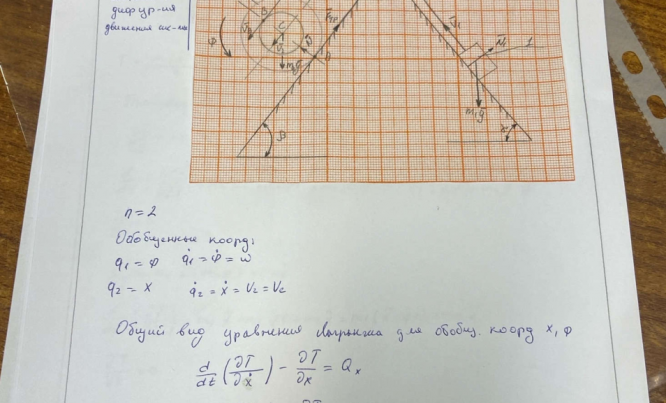 дифур-ия
движения
φ
C
m₂g
β
N
1
m₁g
n = 2
Обобщенные коорд:
q₁ = φ q̇₁ = φ̇ = ω
q₂ = x q̇₂ = ẋ = V₂ = Vc
Общий вид уравнения Лагранжа для обобщ. коорд x, φ
d/dt (∂T/∂ẋ) - ∂T/∂x = Qₓ